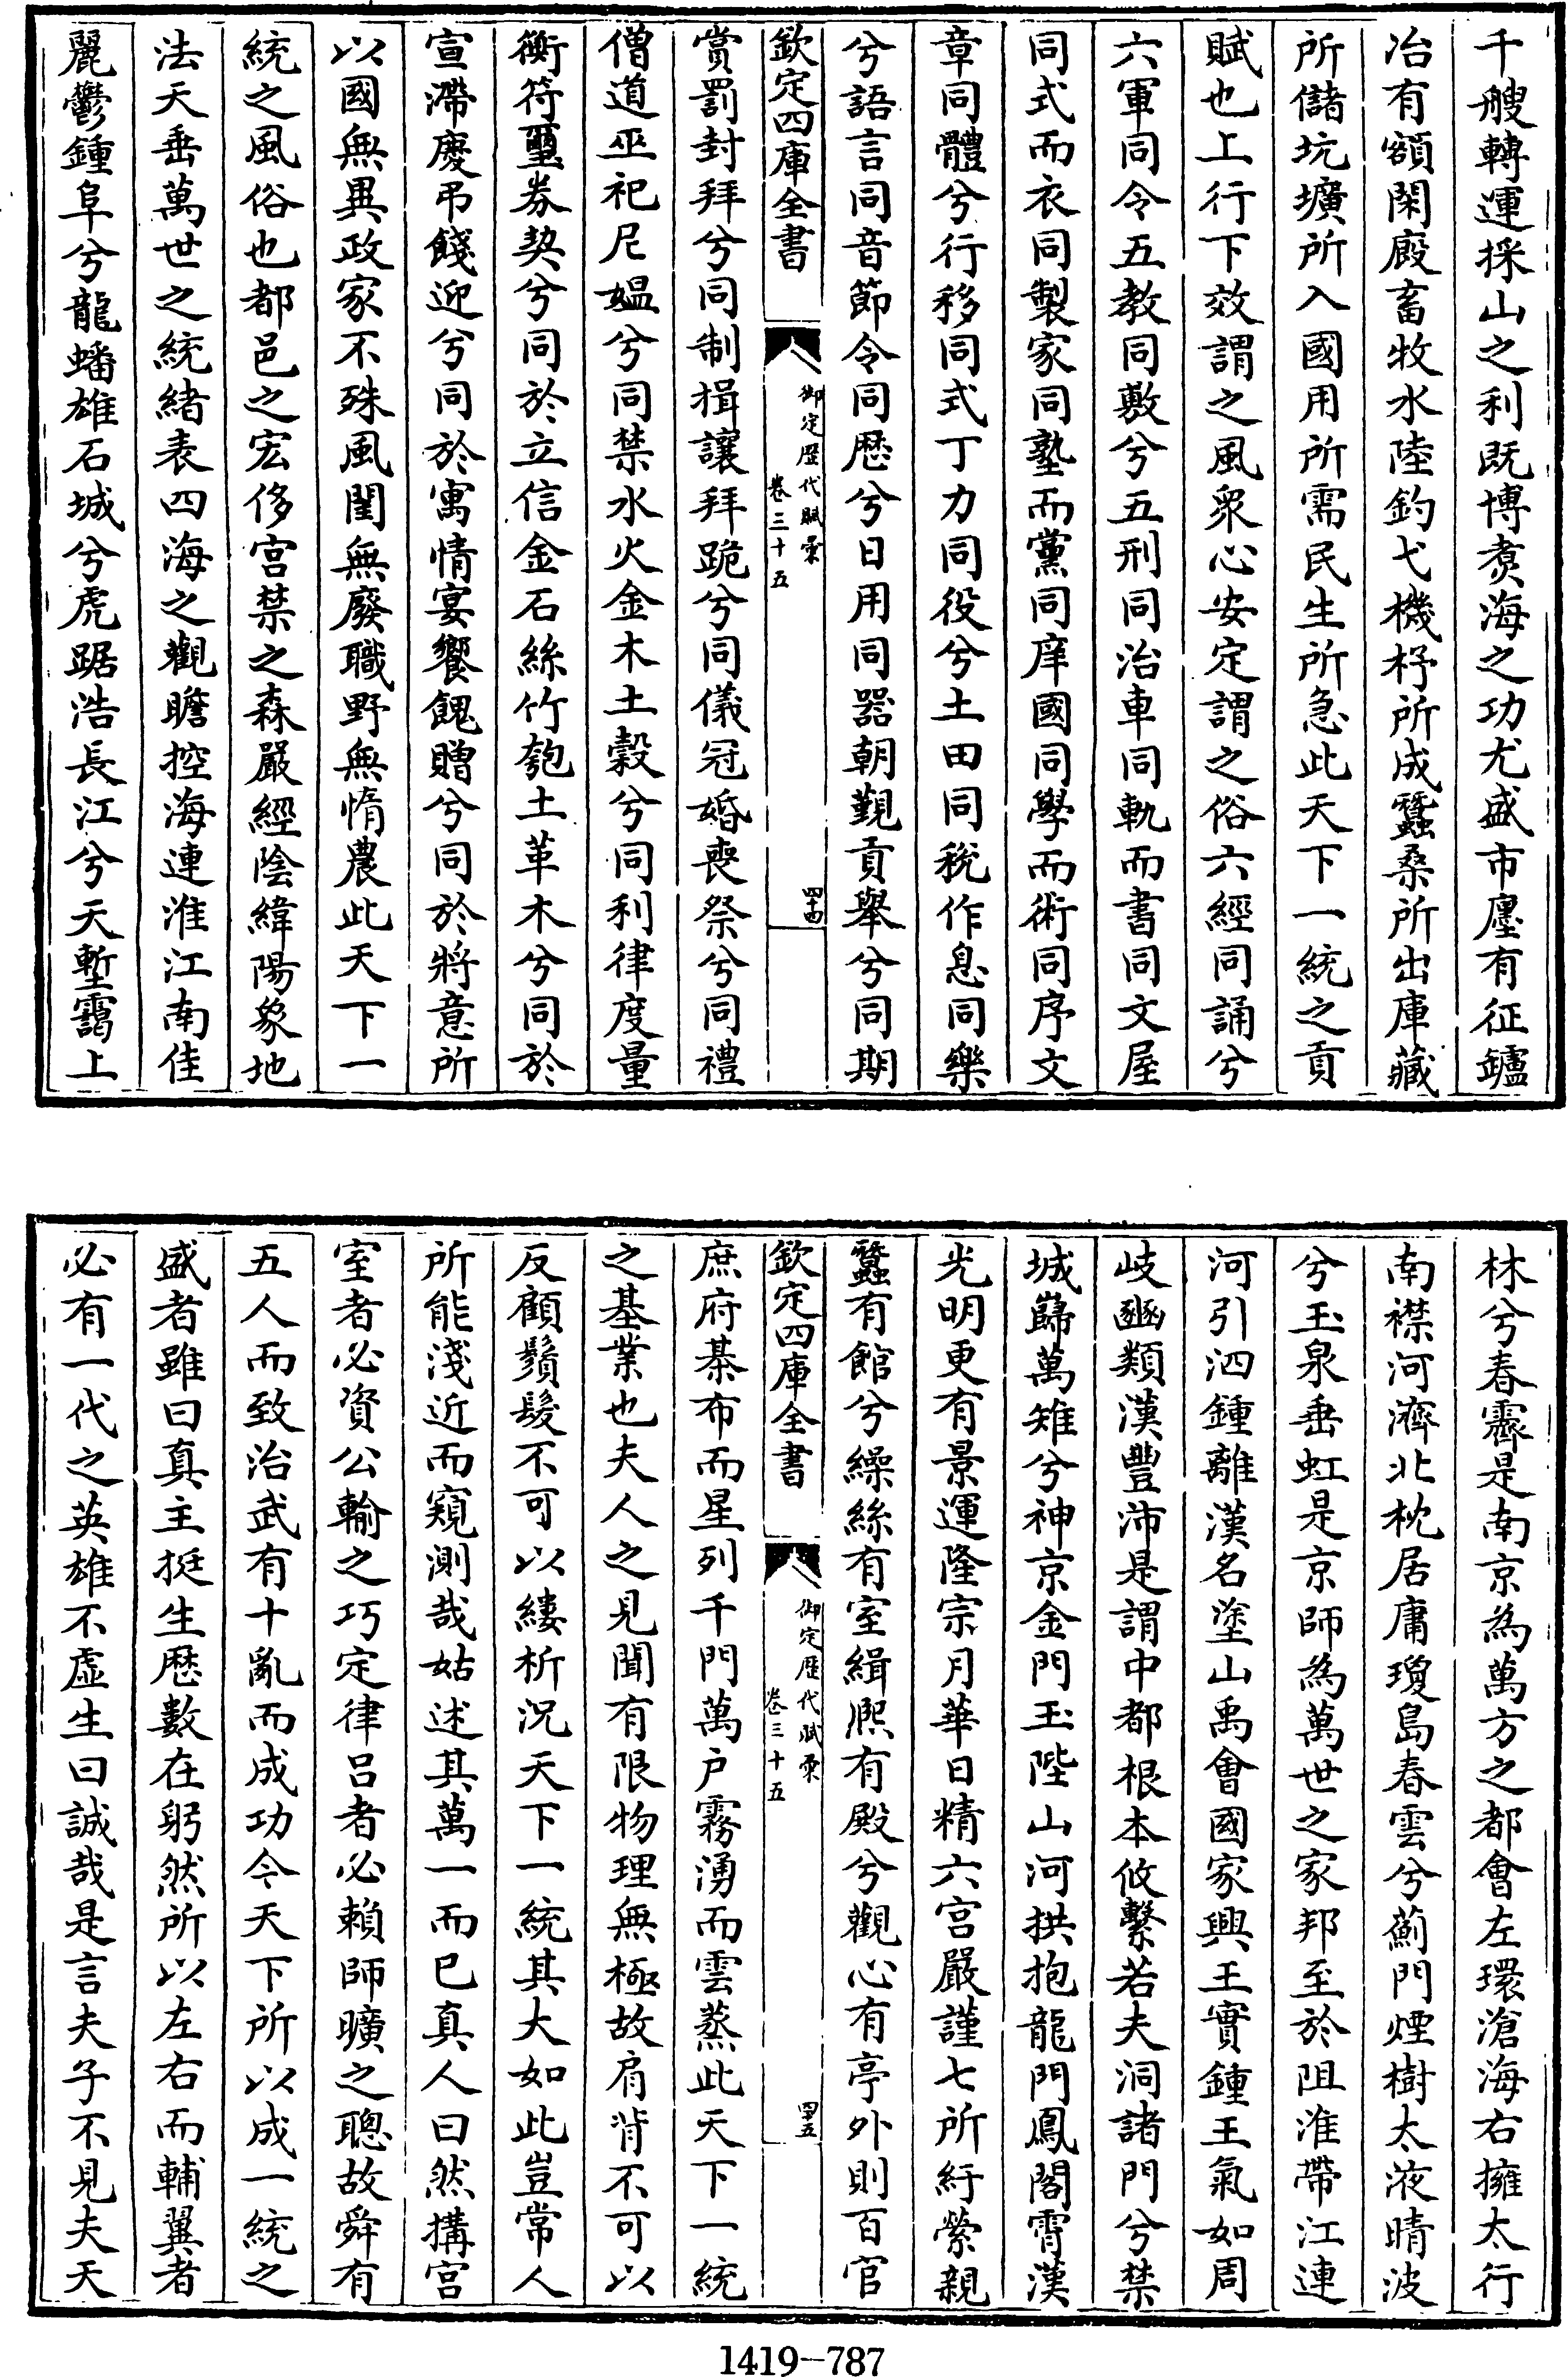 千艘轉運採山之利既博煑海之功尤盛市廛有征鑪
冶有額閑廄畜牧水陸釣弋機杼所成蠶桑所出庫藏
所儲坑壙所入國用所需民生所急此天下一統之貢
賦也上行下效謂之風衆心安定謂之俗六經同誦兮
六軍同令五教同敷兮五刑同治車同軌而書同文屋
同式而衣同製家同塾而黨同庠國同學而術同序文
章同體兮行移同式丁力同役兮土田同稅作息同樂
兮語言同音節令同歴兮日用同器朝覲貢舉兮同期
欽定四庫全書
御定歴代賦彙
卷三十五
四十四
賞罰封拜兮同制揖讓拜跪兮同儀冠婚喪祭兮同禮
僧道巫祀尼媼兮同禁水火金木土糓兮同利律度量
衡符璽券契兮同於立信金石絲竹匏土革木兮同於
宣滯慶弔餞迎兮同於寓情宴饗餽贈兮同於將意所
以國無異政家不殊風閨無廢職野無惰農此天下一
統之風俗也都邑之宏侈宮禁之森嚴經陰緯陽象地
法天垂萬世之統緒表四海之觀瞻控海連淮江南佳
麗鬱鍾阜兮龍蟠雄石城兮虎踞浩長江兮天塹靄上
林兮春霽是南京為萬方之都會左環滄海右擁太行
南襟河濟北枕居庸瓊島春雲兮薊門煙樹太液晴波
兮玉泉垂虹是京師為萬世之家邦至於阻淮帶江連
河引泗鍾離漢名塗山禹會國家興王實鍾王氣如周
岐豳類漢豐沛是謂中都根本攸繫若夫洞諸門兮禁
城巋萬雉兮神京金門玉陛山河拱抱龍門鳳閣霄漢
光明更有景運隆宗月華日精六宮嚴謹七所紆縈親
蠶有館兮繰絲有室緝熈有殿兮觀心有亭外則百官
欽定四庫全書
御定歴代賦彙
卷三十五
四十五
庶府棊布而星列千門萬户霧湧而雲蒸此天下一統
之基業也夫人之見聞有限物理無極故肩背不可以
反顧鬚髮不可以縷析況天下一統其大如此豈常人
所能淺近而窺測哉姑述其萬一而已真人曰然搆宮
室者必資公輸之巧定律吕者必賴師曠之聰故舜有
五人而致治武有十亂而成功今天下所以成一統之
盛者雖曰真主挺生歴數在躬然所以左右而輔翼者
必有一代之英雄不虚生曰誠哉是言夫子不見夫天
1419-787